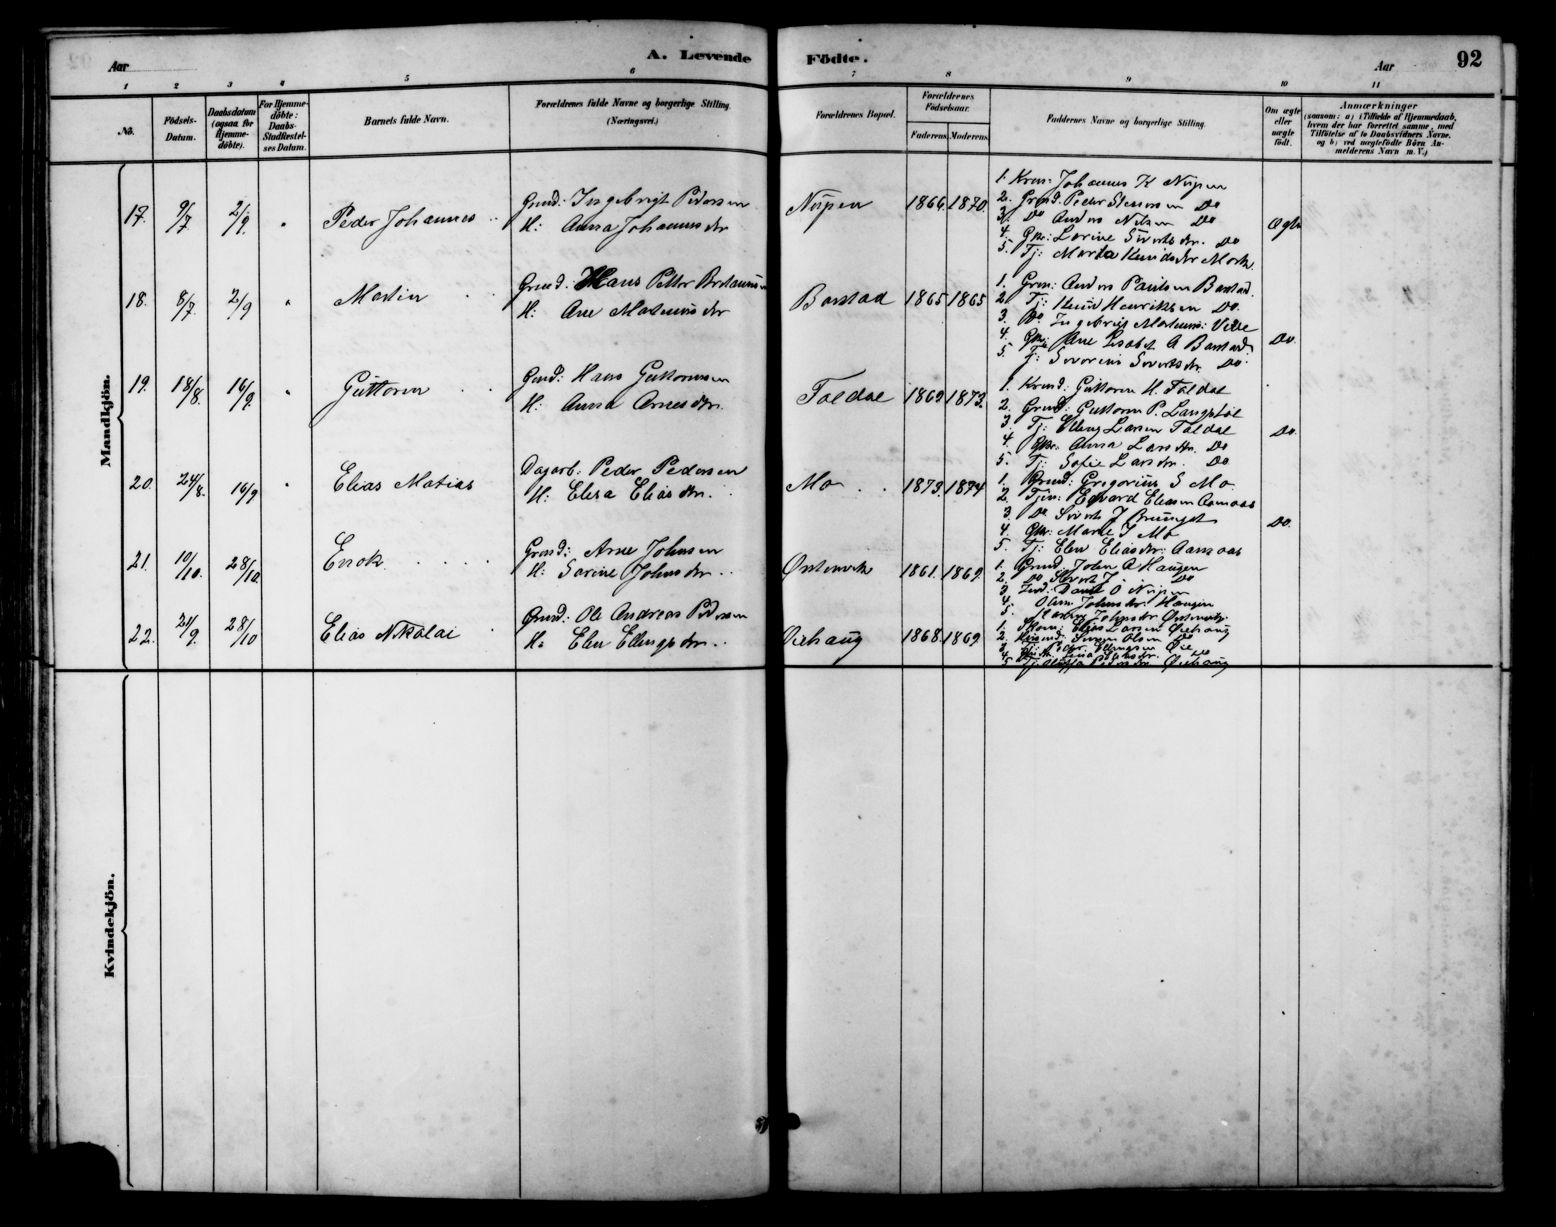 A. Levende Födte. 92
Aar Aar
1 2 3 4 5 6 7 8 9 10 11
No.
Födsels-Datum.
Daabsdatum (ogsaa for Hjemme-döbte).
For Hjemme-döbte: Daabs-Stadfæstel-ses Datum.
Barnets fulde Navn.
Forældrenes fulde Navne og borgerlige Stilling. (Næringsvei.)
Forældrenes Bopæl.
Forældrenes Födselsaar.
Faderens. Moderens.
Faddernes Navne og borgerlige Stilling.
Om ægte eller uægte födt.
Anmærkninger
(saasom: a) i Tilfælde af Hjemmedaab,
hvem der har forrettet samme, med
Tilföielse af to Daabsvidners Navne.
og b) ved uægtefödte Börn An-
melderens Navn m. V.)
Mandkjön.
17. 9/7 2/9. " Peder Johannes
Grmd: Ingebrigt Pedersen
H: Anna Johannesdtr
Nupen 1866. 1870.
1. Johannes K Nupen
2. Grmd. Peder Do
3. Do Anders Nilsen Do
4. Gkr: Lorine Sivertsdtr. Do
5. Tj: Marta Knudsdtr Mork
Ægte
18. 8/7. 2/9 " Martin
Grmd. Hans Petter
H: Ane Martinusdtr
Barstad 1865 1865
1. Grm: Anders Paulsen Barstad.
2. Tj: Knud Henriksen Do.
3. Ingebrigt Martinus:
4. Gkr: Ane Lisabet A Barstad.
5. Tj: Severine Sivertsdtr. Do.
Do.
19. 18/8. 16/9. " Guttorm
Grmd: Hans Guttormsen
H: Anna Arnesdtr.
Foldal 1869 1873.
1. Guttorm H. Foldal
2. Grmd: Guttorm P. Langstøl
3. Tj: Elling Larsen Foldal
4. Gkr. Anna Larsdtr. Do
5. Tj: Sofie Larsdtr. Do
Do.
20. 24/8. 16/9 " Elias Matias
Dagarb: Peder Pedersen
H: Elisa Eliasdtr.
Mo 1873. 1874
1. Grmd: Gregorius S Mo
2. Edvard Eliasen Aamaas
3. Do Sivert J
4. Gkr: Marie S Mo
5. Tj: Elen Eliasdtr: Aamaas
Do.
21. 10/10. 28/10 Enok
Grmd: Arne Johnsen
H: Sorine Johnsdtr.
1861. 1869.
1. Grmd: John A Haugen
2. Do Sivert J. Do
3. Daniel O Nupen
4. Johnsdtr. Haugen
5. Johnsdtr
22. 21/9. 28/10 Elias Nikolai
Grmd: Ole Andreas Pedersen
H: Elen Ellingsdtr.
Øiehaug 1868. 1869
1. Elias Larsen Øiehaug
2. Olsen Do
3. Peder Ellingsen Øie
4. Do
5. Tj: Pedersdtr Øiehaug
Kvindekjön.